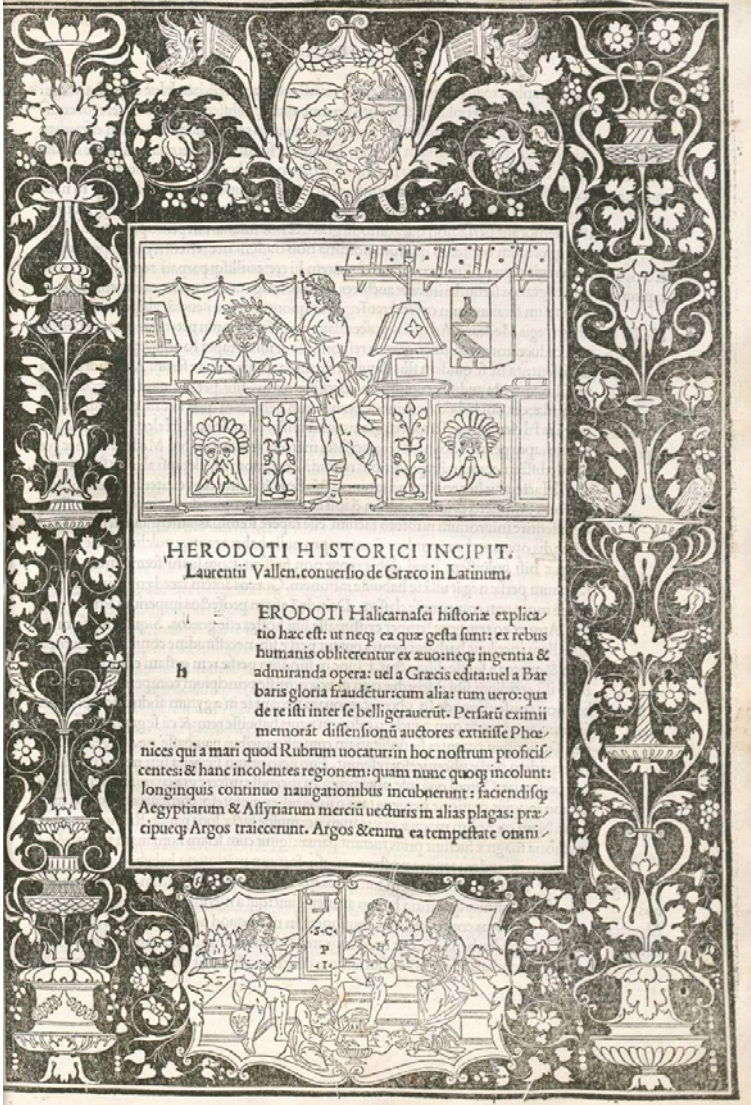 HERODOTI HISTORICI INCIPIT.
Laurentii Vallen. conuersio de Græco in Latinum.
h
ERODOTI Halicarnasei historiæ explica⸗
tio hæc est: ut neqꝫ ea quæ gesta sunt: ex rebus
humanis obliterentur ex æuo: neqꝫ ingentia &
admiranda opera: uel a Græcis edita: uel a Bar
baris gloria fraudētur: cum alia: tum uero: qua
de re isti inter se belligerauerūt. Persarū eximii
memorāt dissensionū auctores extitisse Phœ⸗
nices qui a mari quod Rubrum uocatur: in hoc nostrum proficis⸗
centes: & hanc incolentes regionem: quam nunc quoqꝫ incolunt:
longinquis continuo nauigationibus incubuerunt: faciendisqꝫ
Aegyptiarum & Assyriarum merciū uecturis in alias plagas: præ⸗
cipueqꝫ Argos traiecerunt. Argos &enim ea tempestate omni⸗
·S·C·
P
·I·